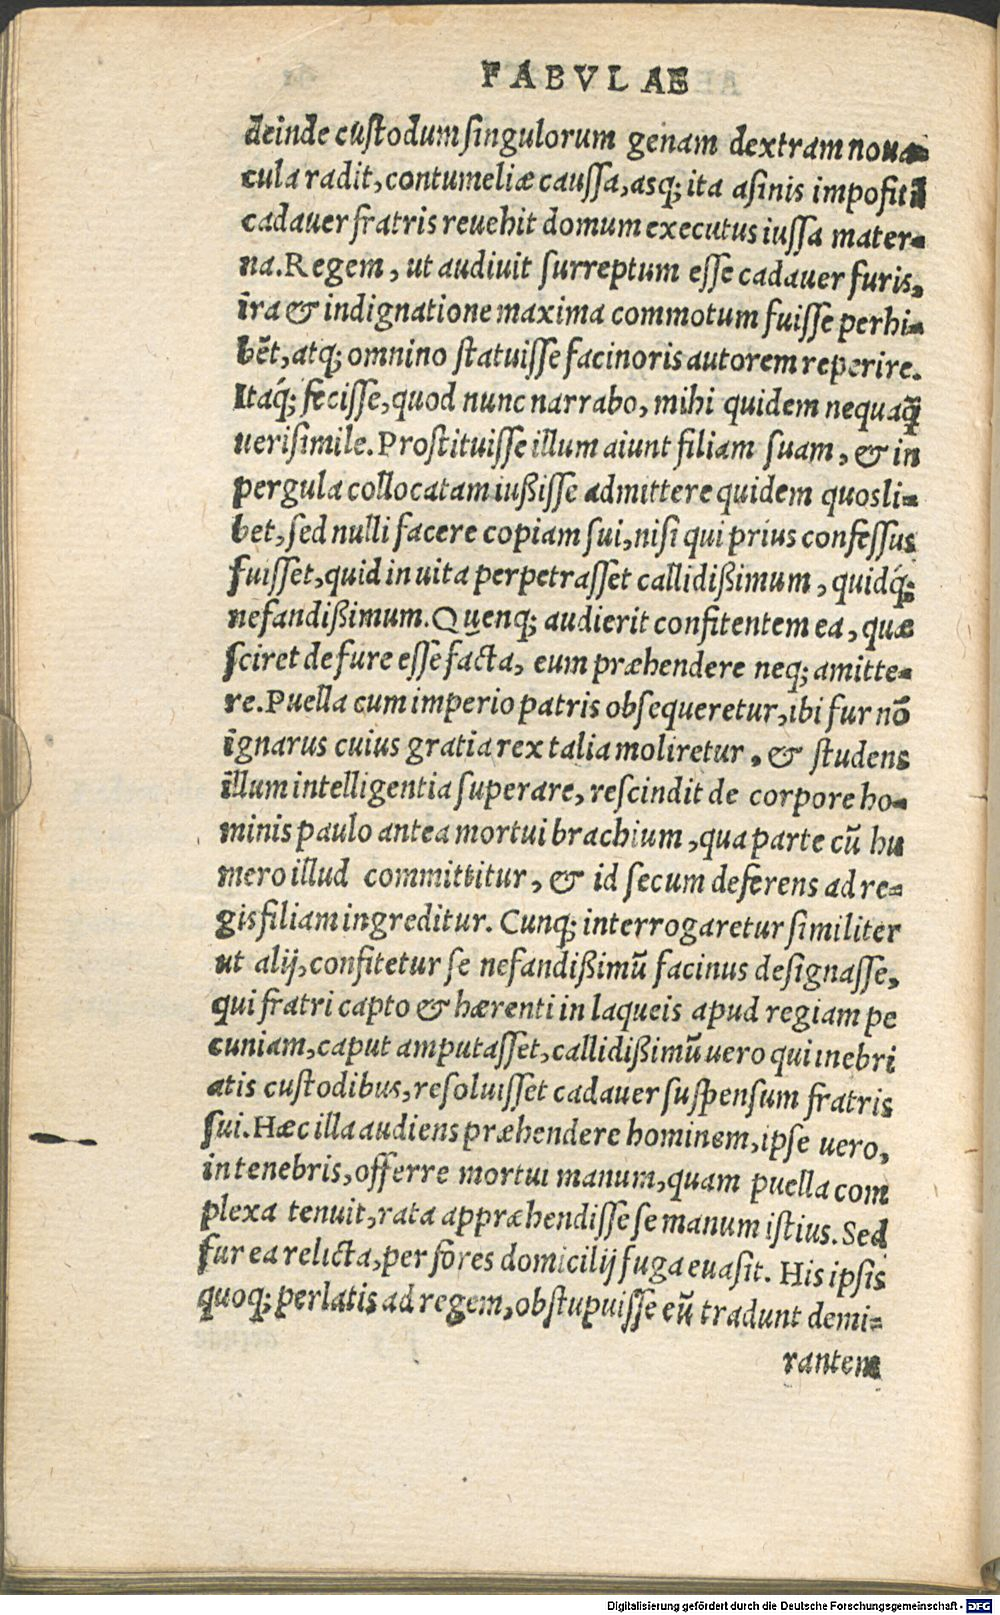 FABVLAE
deinde custodum singulorum genam dextram noua-
cula radit, contumeliæ caussa, asq; ita asinis imposititi
cadauer fratris reuehit domum executus iussa mater-
na. Regem, ut audiuit surreptum esse cadauer furis,
ira & indignatione maxima commotum fuisse perhi-
bẽt, atq; omnino statuisse facinoris autorem reperire.
Itaq́; fecisse, quod nunc narrabo, mihi quidem nequaq̃
uerisimile. Prostituisse illum aiunt filiam suam, & in
pergula collocatam iußisse admittere quidem quosli-
bet, sed nulli facere copiam sui, nisi qui prius confessus
fuisset, quid in uita perpetrasset callidißimum, quidq́;
nefandißimum. Quenq; audierit confitentem ea, quæ
sciret de fure esse facta, eum præhendere neq; amitte-
re. Puella cum imperio patris obsequeretur, ibi fur nõ
ignarus cuius gratia rex talia moliretur, & studens
illum intelligentia superare, rescindit de corpore ho-
minis paulo antea mortui brachium, qua parte cũ hu
mero illud committitur, & id secum deferens ad re-
gis filiam ingreditur. Cunq; interrogaretur similiter
ut alij, confitetur se nefandißimũ facinus designasse,
qui fratri capto & hærenti in laqueis apud regiam pe
cuniam, caput amputasset, callidißimũ uero qui inebri
atis custodibus, resoluisset cadauer suspensum fratris
sui. Hæc illa audiens præhendere hominem, ipse uero,
in tenebris, offerre mortui manum, quam puella com
plexa tenuit, rata appræhendisse se manum istius. Sed
fur ea relicta, per fores domicilij fuga euasit. His ipsis
quoq; perlatis ad regem, obstupuisse eũ tradunt demi-
rantem
Digitalisierung gefördert durch die Deutsche Forschungsgemeinschaft - DFG